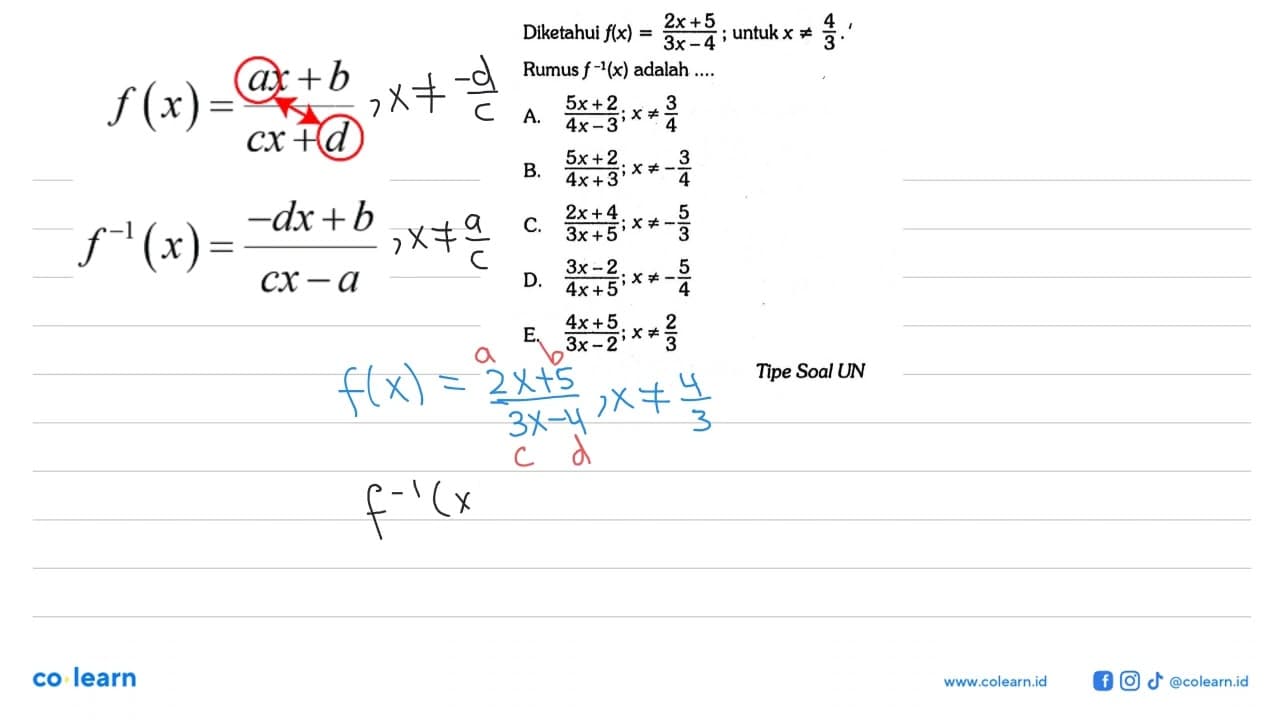 Diketahui f(x) = \frac{2x+5}{3x-4}; untuk x ≠ \frac{4}{3}.
Rumus f⁻¹(x) adalah ....
A. \frac{5x+2}{4x-3}; x ≠ \frac{3}{4}
B. \frac{5x+2}{4x+3}; x ≠ -\frac{3}{4}
C. \frac{2x+4}{3x+5}; x ≠ -\frac{5}{3}
D. \frac{3x-2}{4x+5}; x ≠ -\frac{5}{4}
E. \frac{4x+5}{3x-2}; x ≠ \frac{2}{3}
Tipe Soal UN
f(x) = \frac{ax+b}{cx+d}, x ≠ \frac{-d}{c}
f⁻¹(x) = \frac{-dx+b}{cx-a}, x ≠ \frac{a}{c}
a b
f(x) = \frac{2x+5}{3x-4}, x ≠ \frac{4}{3}
c d
f⁻¹(x
co learn
www.colearn.id
@colearn.id